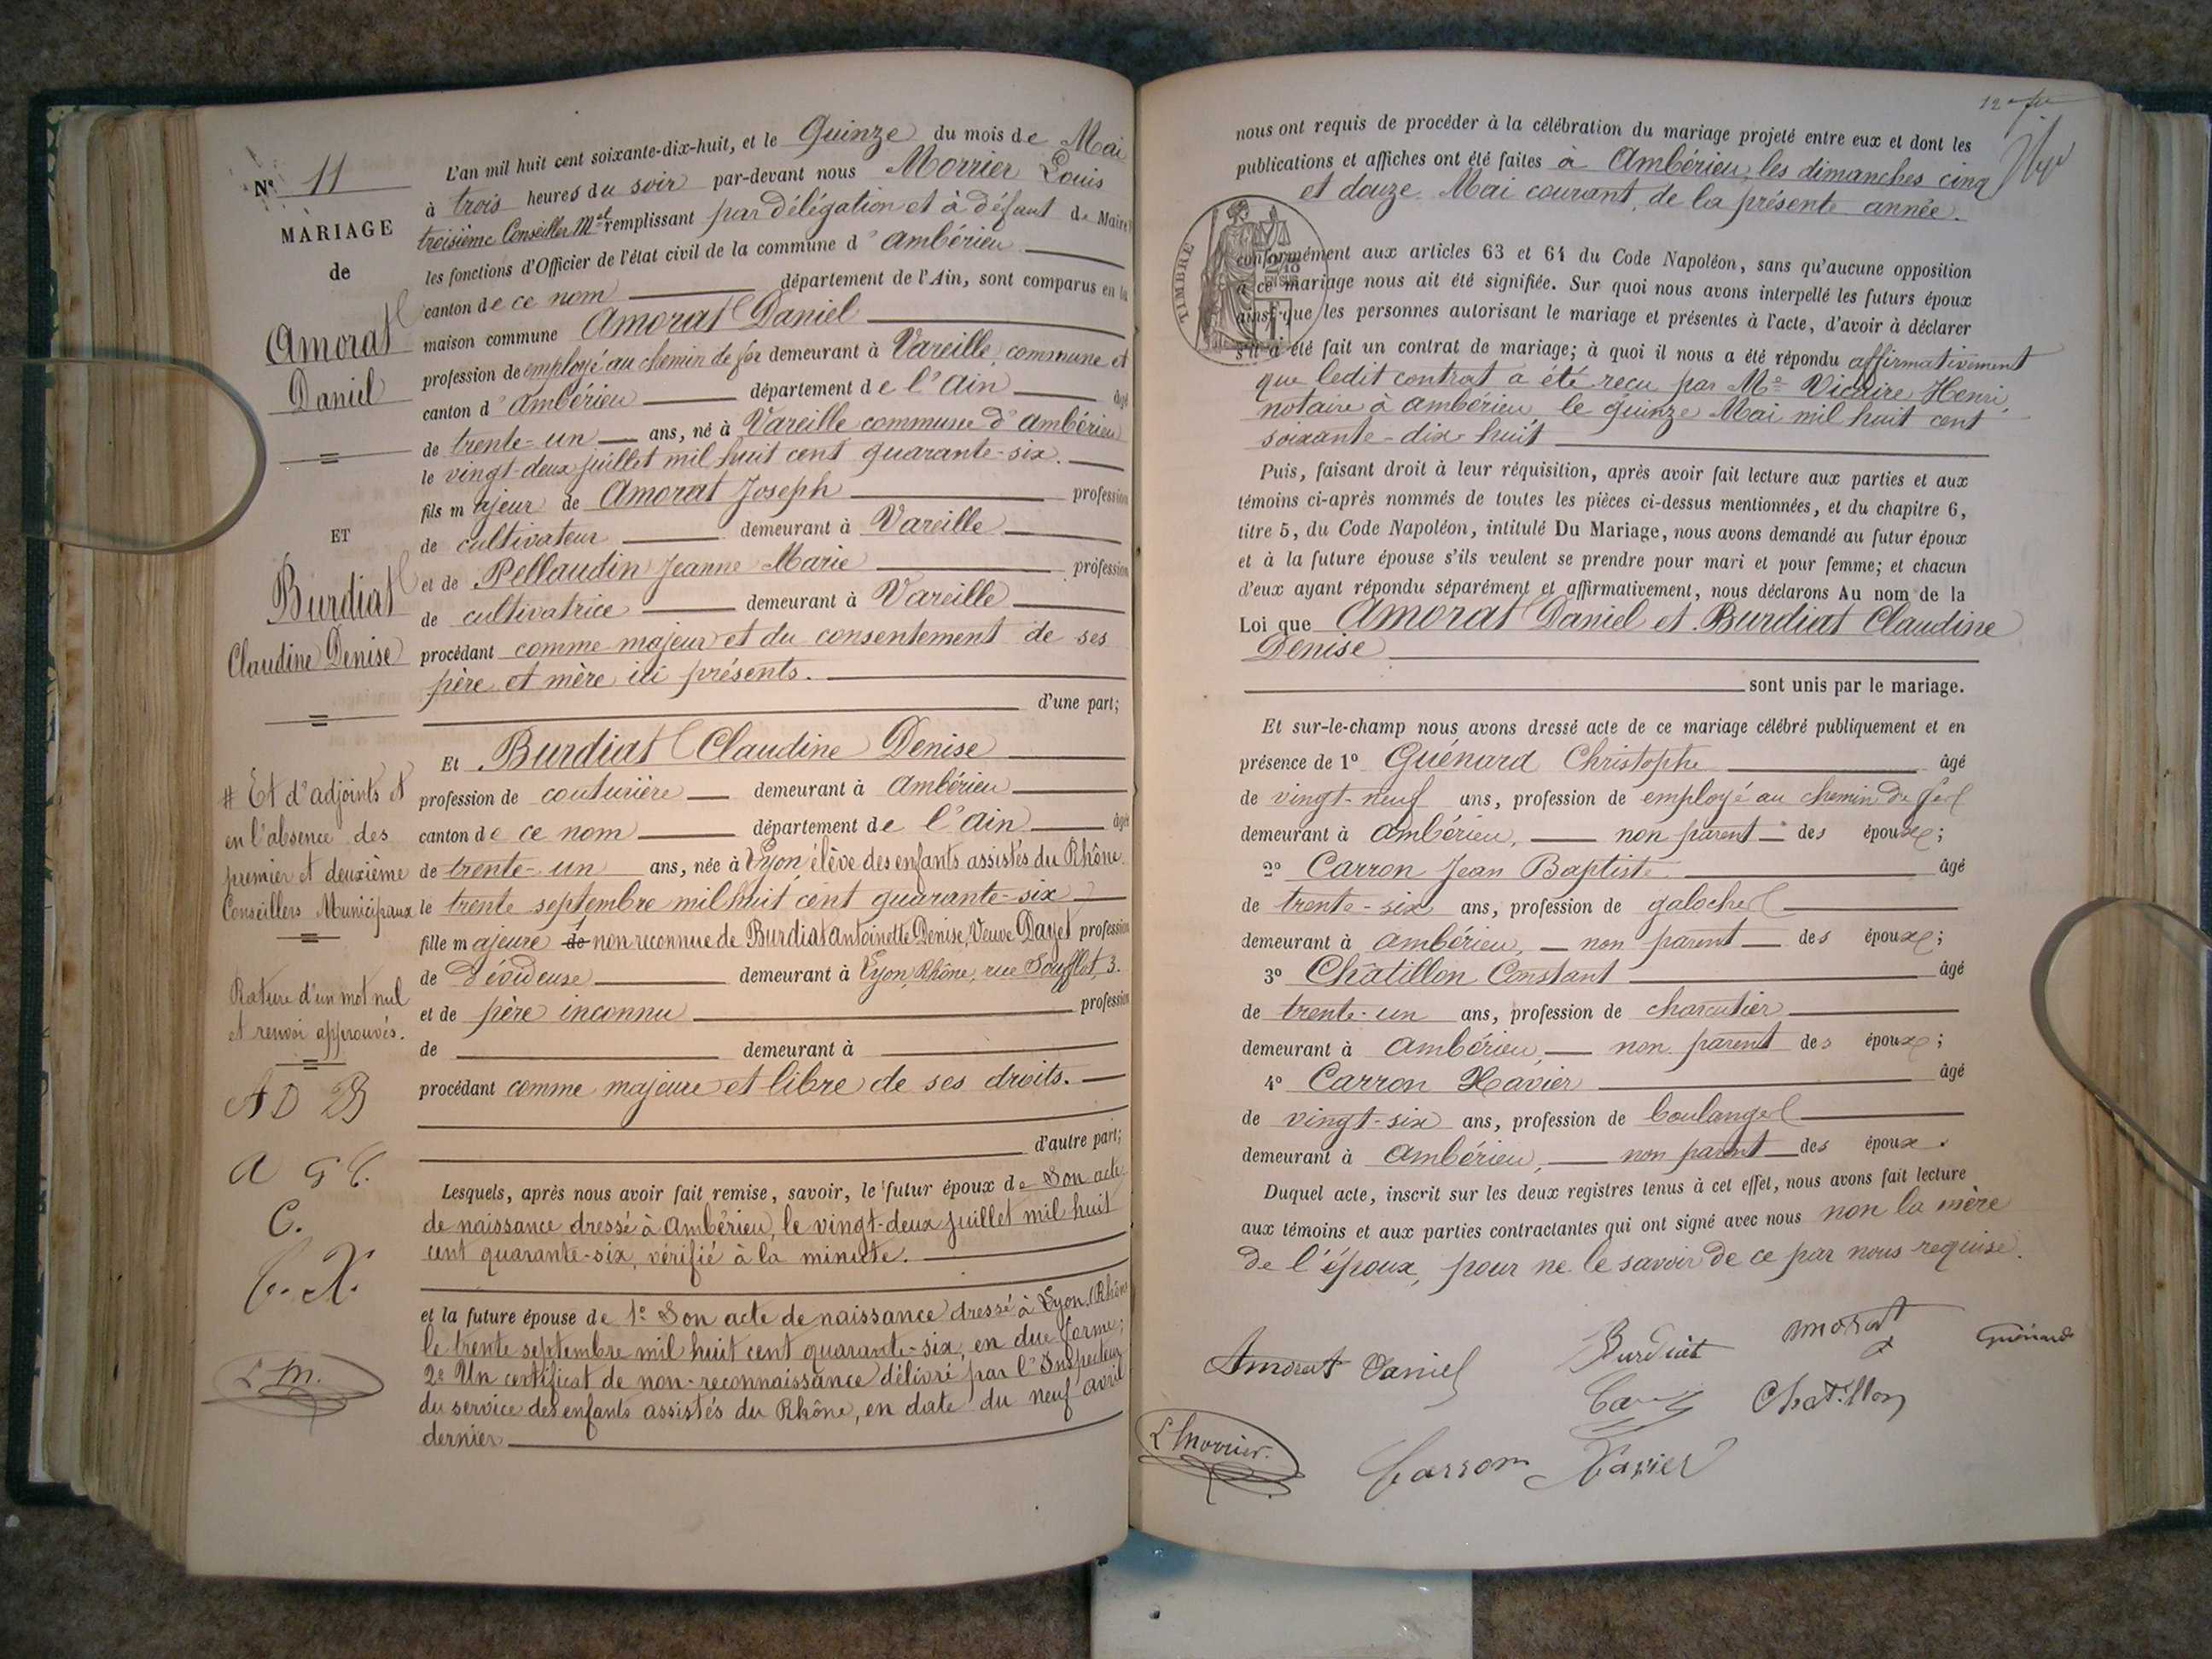 Nº 11
MARIAGE
de
Amorat
Daniel
ET
Burdiat
Claudine Denise
# Et d'adjoints et
en l'absence des
premier et deuxième
Conseillers Municipaux
Rature d'un mot nul
et renvoi approuvés.
A D B
A G C.
C.
C. X.
L M.
L'an mil huit cent soixante-dix-huit, et le Quinze du mois de Mai
à trois heures du soir par-devant nous Morrier Louis
troisième Conseiller Mal remplissant par délégation et à défaut de Maire
les fonctions d'Officier de l'état civil de la commune d'Ambérieu
canton de ce nom département de l'Ain, sont comparus en la
maison commune Amorat Daniel
profession de employé au chemin de fer demeurant à Vareille, commune et
canton d'Ambérieu département de l'Ain âgé
de trente-un ans, né à Vareille commune d'Ambérieu
le vingt-deux juillet mil huit cent quarante-six.
fils majeur de Amorat Joseph profession
de cultivateur demeurant à Vareille
et de Pellaudin Jeanne Marie profession
de cultivatrice demeurant à Vareille
procédant comme majeur et du consentement de ses
père et mère ici présents.
d'une part;
Et Burdiat Claudine Denise
profession de couturière demeurant à Ambérieu
canton de ce nom département de l'Ain âgée
de trente-un ans, née à Lyon, élève des enfants assistés du Rhône
le trente septembre mil huit cent quarante-six
fille majeure de non reconnue de Burdiat Antoinette Denise, Veuve Dayet profession
de dévideuse demeurant à Lyon, Rhône, rue Soufflot, 3.
et de père inconnu profession
de demeurant à
procédant comme majeure et libre de ses droits.
d'autre part;
Lesquels, après nous avoir fait remise, savoir, le futur époux de Son acte
de naissance dressé à Ambérieu, le vingt-deux juillet mil huit
cent quarante-six, vérifié à la minute.
et la future épouse de 1º Son acte de naissance dressé à Lyon (Rhône
le trente septembre mil huit cent quarante-six, en due forme;
2º Un certificat de non-reconnaissance délivré par l'Inspecteur
du service des enfants assistés du Rhône, en date du neuf avril
dernier
nous ont requis de procéder à la célébration du mariage projeté entre eux et dont les
publications et affiches ont été faites à Ambérieu, les dimanches cinq
et douze Mai courant, de la présente année.
TIMBRE
conformément aux articles 63 et 64 du Code Napoléon, sans qu'aucune opposition
à ce mariage nous ait été signifiée. Sur quoi nous avons interpellé les futurs époux
ainsi que les personnes autorisant le mariage et présentes à l'acte, d'avoir à déclarer
s'il a été fait un contrat de mariage; à quoi il nous a été répondu affirmativement
que ledit contrat a été reçu par Me Vicaire Henri,
notaire à Ambérieu le quinze Mai mil huit cent
soixante-dix-huit
Puis, faisant droit à leur réquisition, après avoir fait lecture aux parties et aux
témoins ci-après nommés de toutes les pièces ci-dessus mentionnées, et du chapitre 6,
titre 5, du Code Napoléon, intitulé Du Mariage, nous avons demandé au futur époux
et à la future épouse s'ils veulent se prendre pour mari et pour femme; et chacun
d'eux ayant répondu séparément et affirmativement, nous déclarons Au nom de la
Loi que Amorat Daniel et Burdiat Claudine
Denise
sont unis par le mariage.
Et sur-le-champ nous avons dressé acte de ce mariage célébré publiquement et en
présence de 1º Guénard Christophe âgé
de vingt-neuf ans, profession de employé au chemin de fer
demeurant à Ambérieu, non parent des époux;
2º Carron Jean Baptiste âgé
de trente-six ans, profession de galocher
demeurant à Ambérieu, non parent des époux;
3º Châtillon Constant âgé
de trente-un ans, profession de charcutier
demeurant à Ambérieu, non parent des époux;
4º Carron Xavier âgé
de vingt-six ans, profession de boulanger
demeurant à Ambérieu, non parent des époux.
Duquel acte, inscrit sur les deux registres tenus à cet effet, nous avons fait lecture
aux témoins et aux parties contractantes qui ont signé avec nous non la mère
de l'époux, pour ne le savoir de ce par nous requise.
Amorat Daniel Burdiat amorat Guénard
Chatillon
L Morrier. Carron Xavier